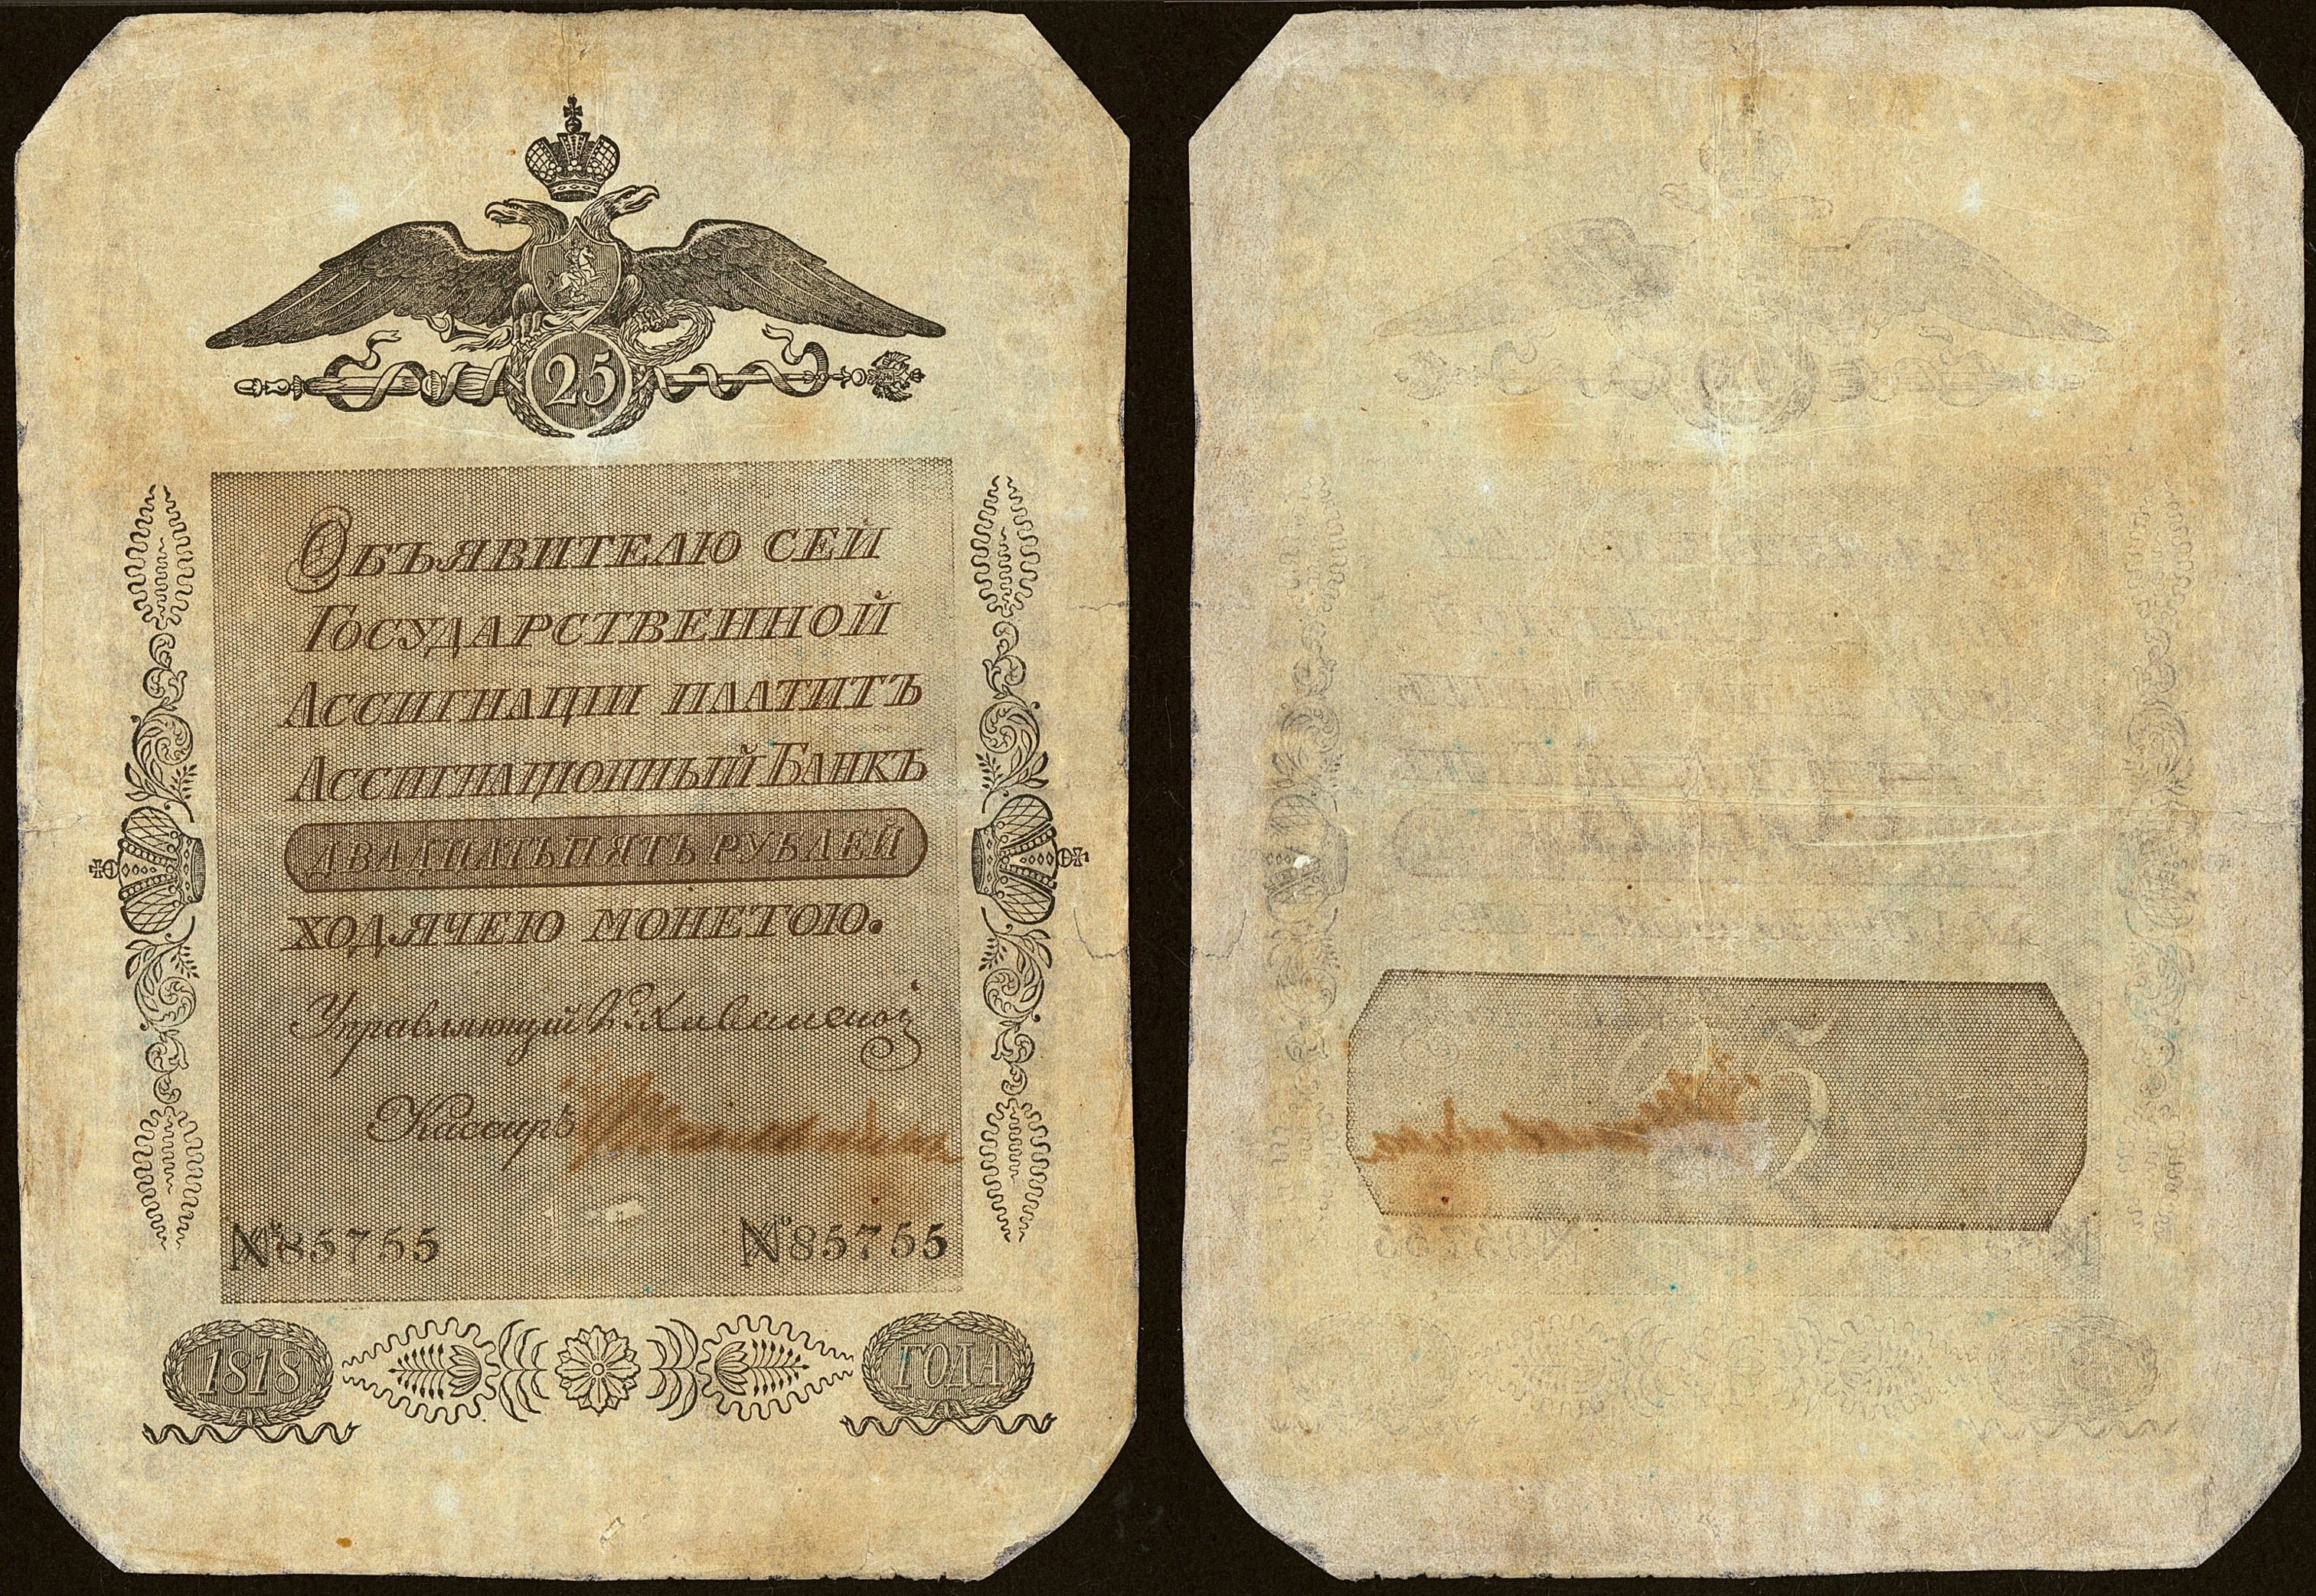 25
Объявителю сей
Государственной
Ассигнаціи платитъ
Ассигнаціонный Банкъ
двадцать пять рублей
ходячею монетою.
Управляющий
Кассиръ
№ 85755
№ 85755
1818
ГОДА